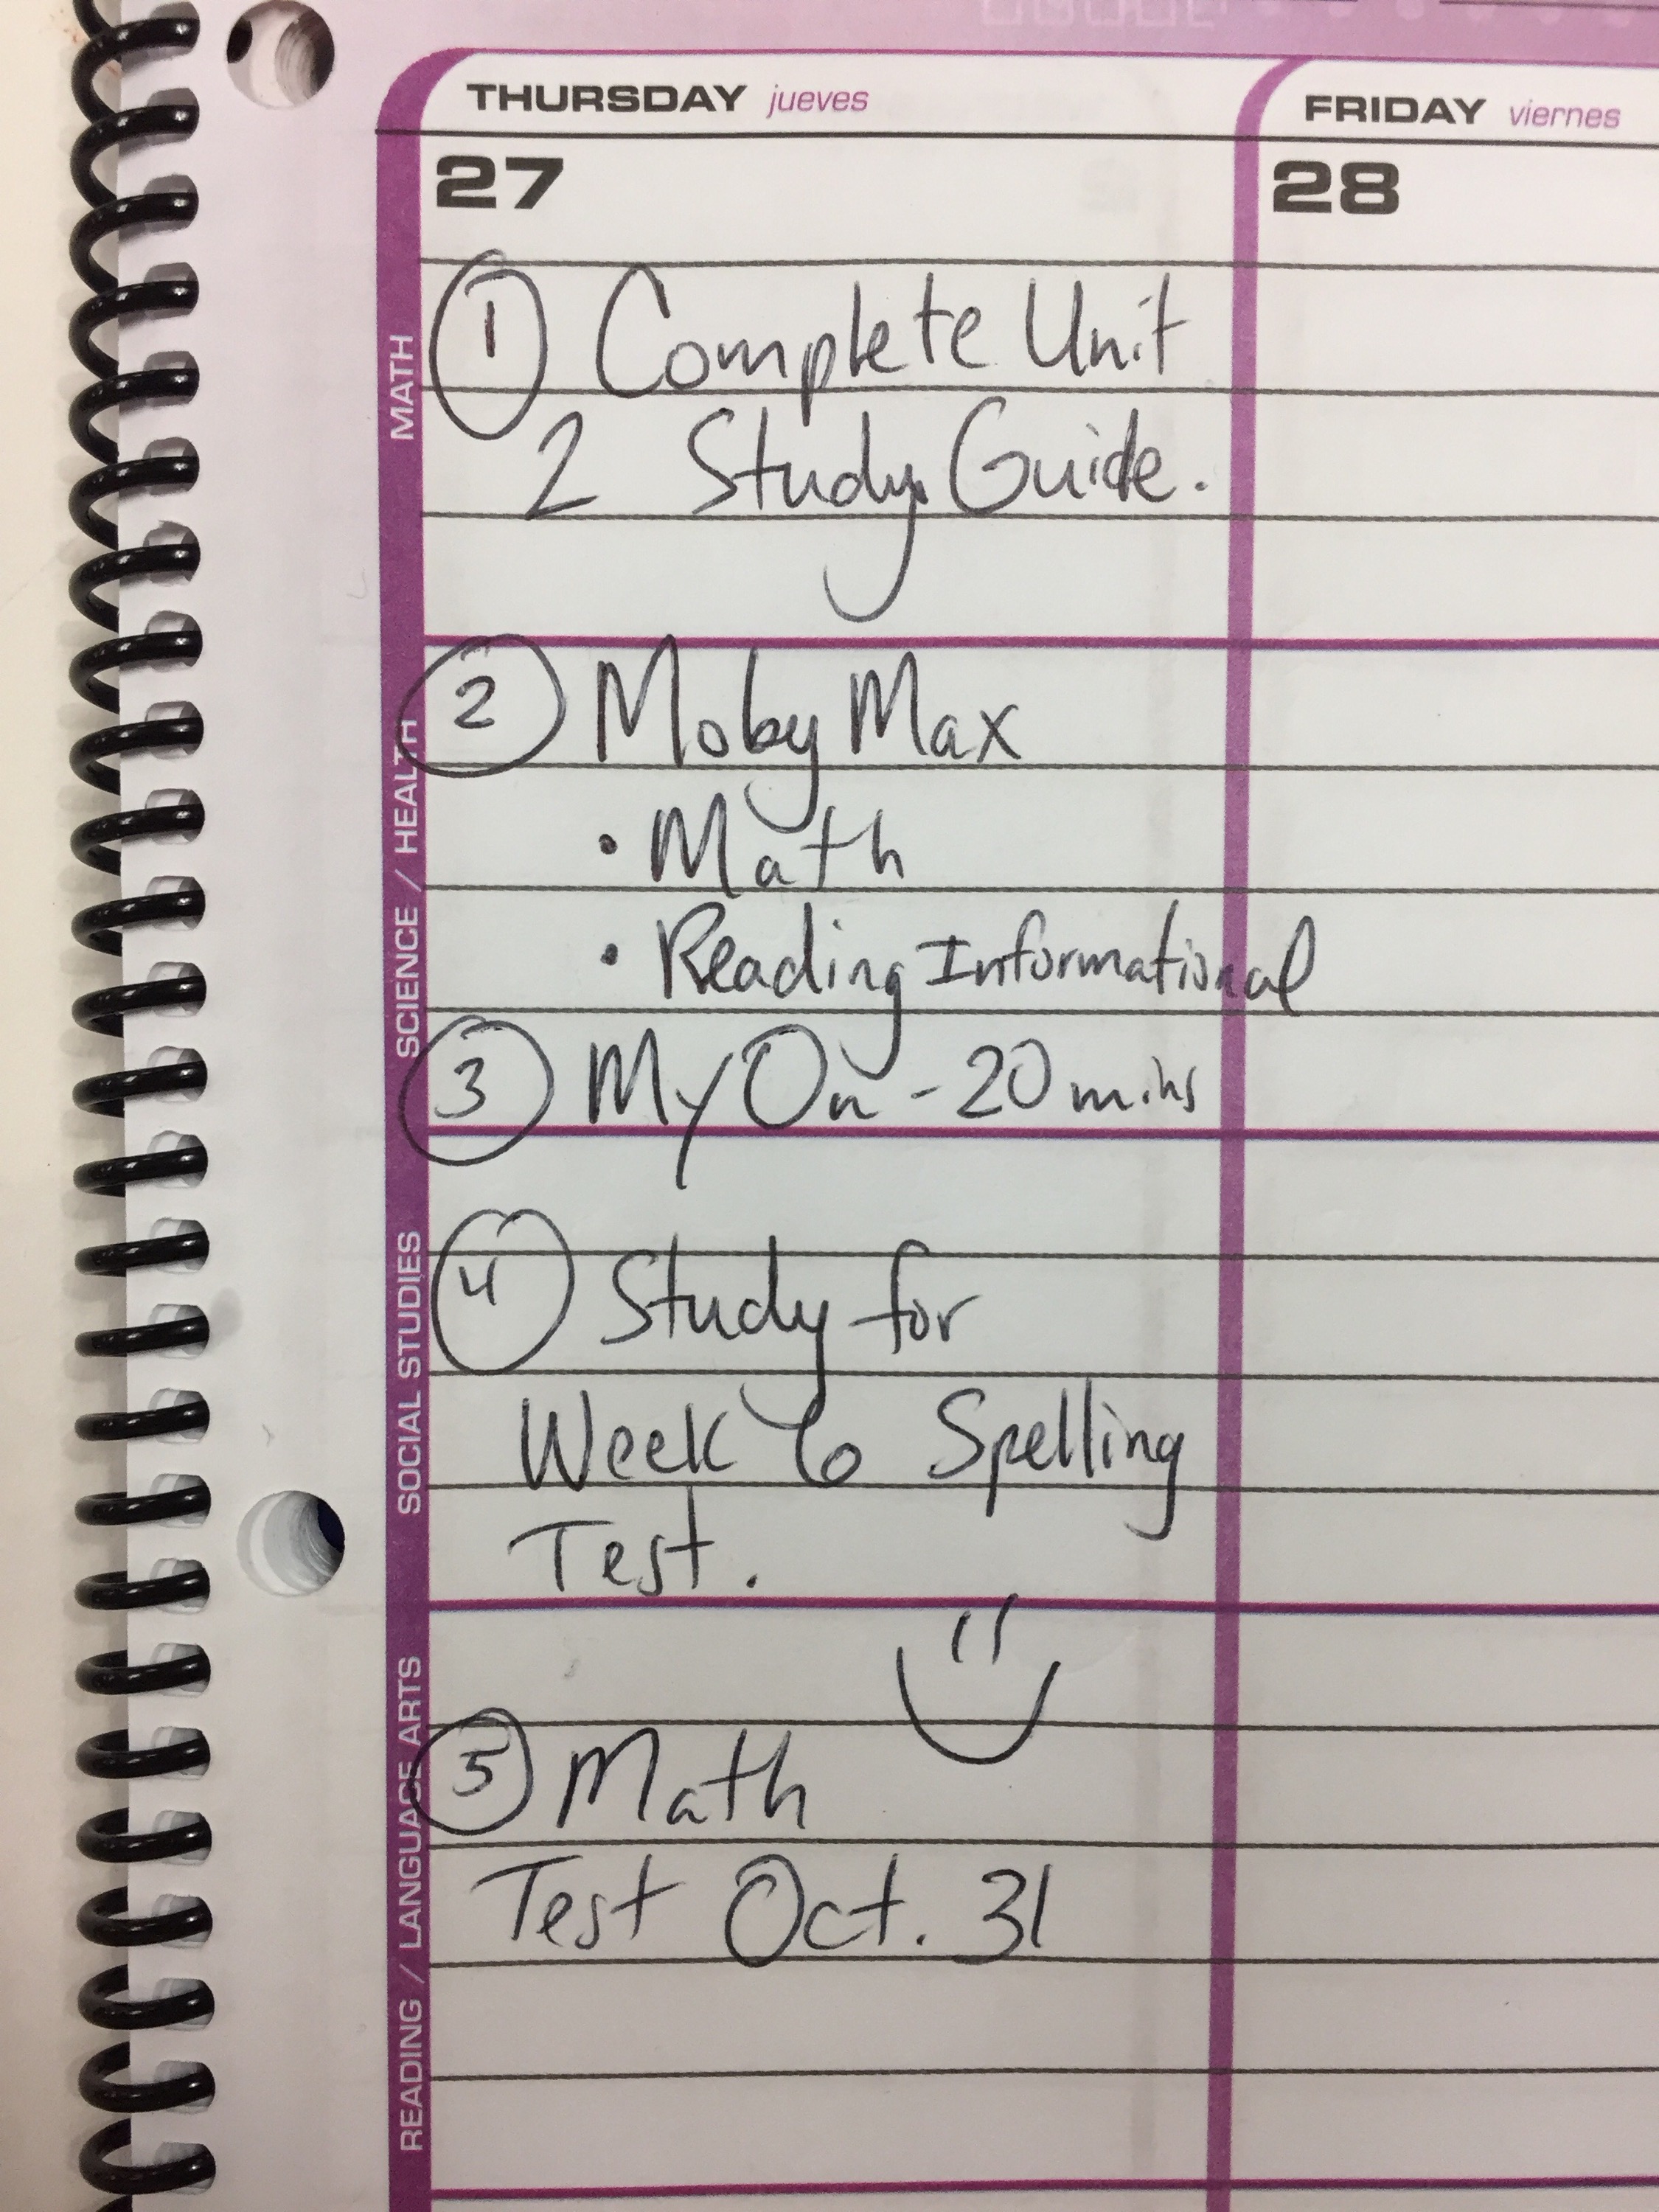 THURSDAY jueves
27
① Complete Unit
2 Study Guide.
② Moby Max
• Math
• Reading Informational
③ My On - 20 mins
④ Study for
Week 6 Spelling
Test.
⑤ Math
Test Oct. 31
FRIDAY viernes
28
MATH
SCIENCE / HEALTH
SOCIAL STUDIES
READING / LANGUAGE ARTS